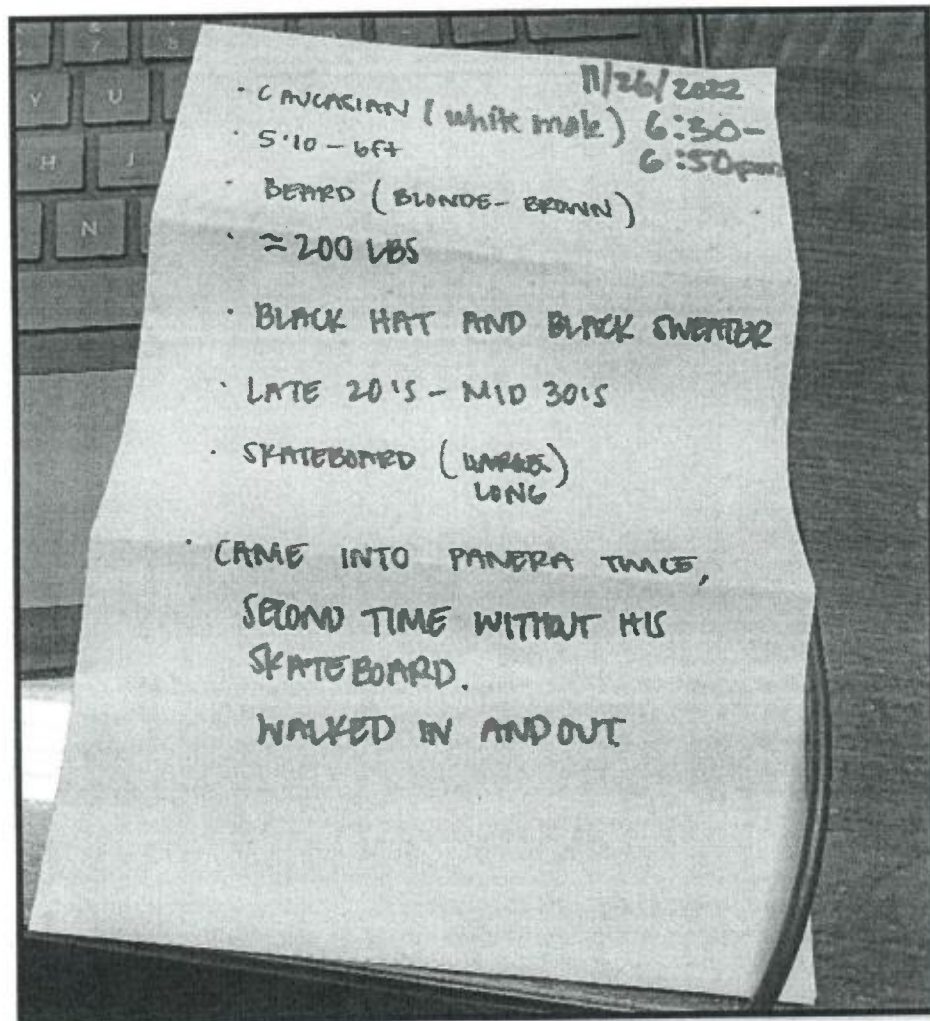 11/26/2022
· CAUCASIAN (white male) 6:30-
6:50pm
· 5'10 - 6ft
· BEARD (BLONDE- BROWN)
· ≈ 200 LBS
· BLACK HAT AND BLACK SWEATER
· LATE 20'S - MID 30'S
· SKATEBOARD (LARGE)
LONG
· CAME INTO PANERA TWICE,
SECOND TIME WITHOUT HIS
SKATEBOARD.
WALKED IN AND OUT
Y
U
H
J
N
7